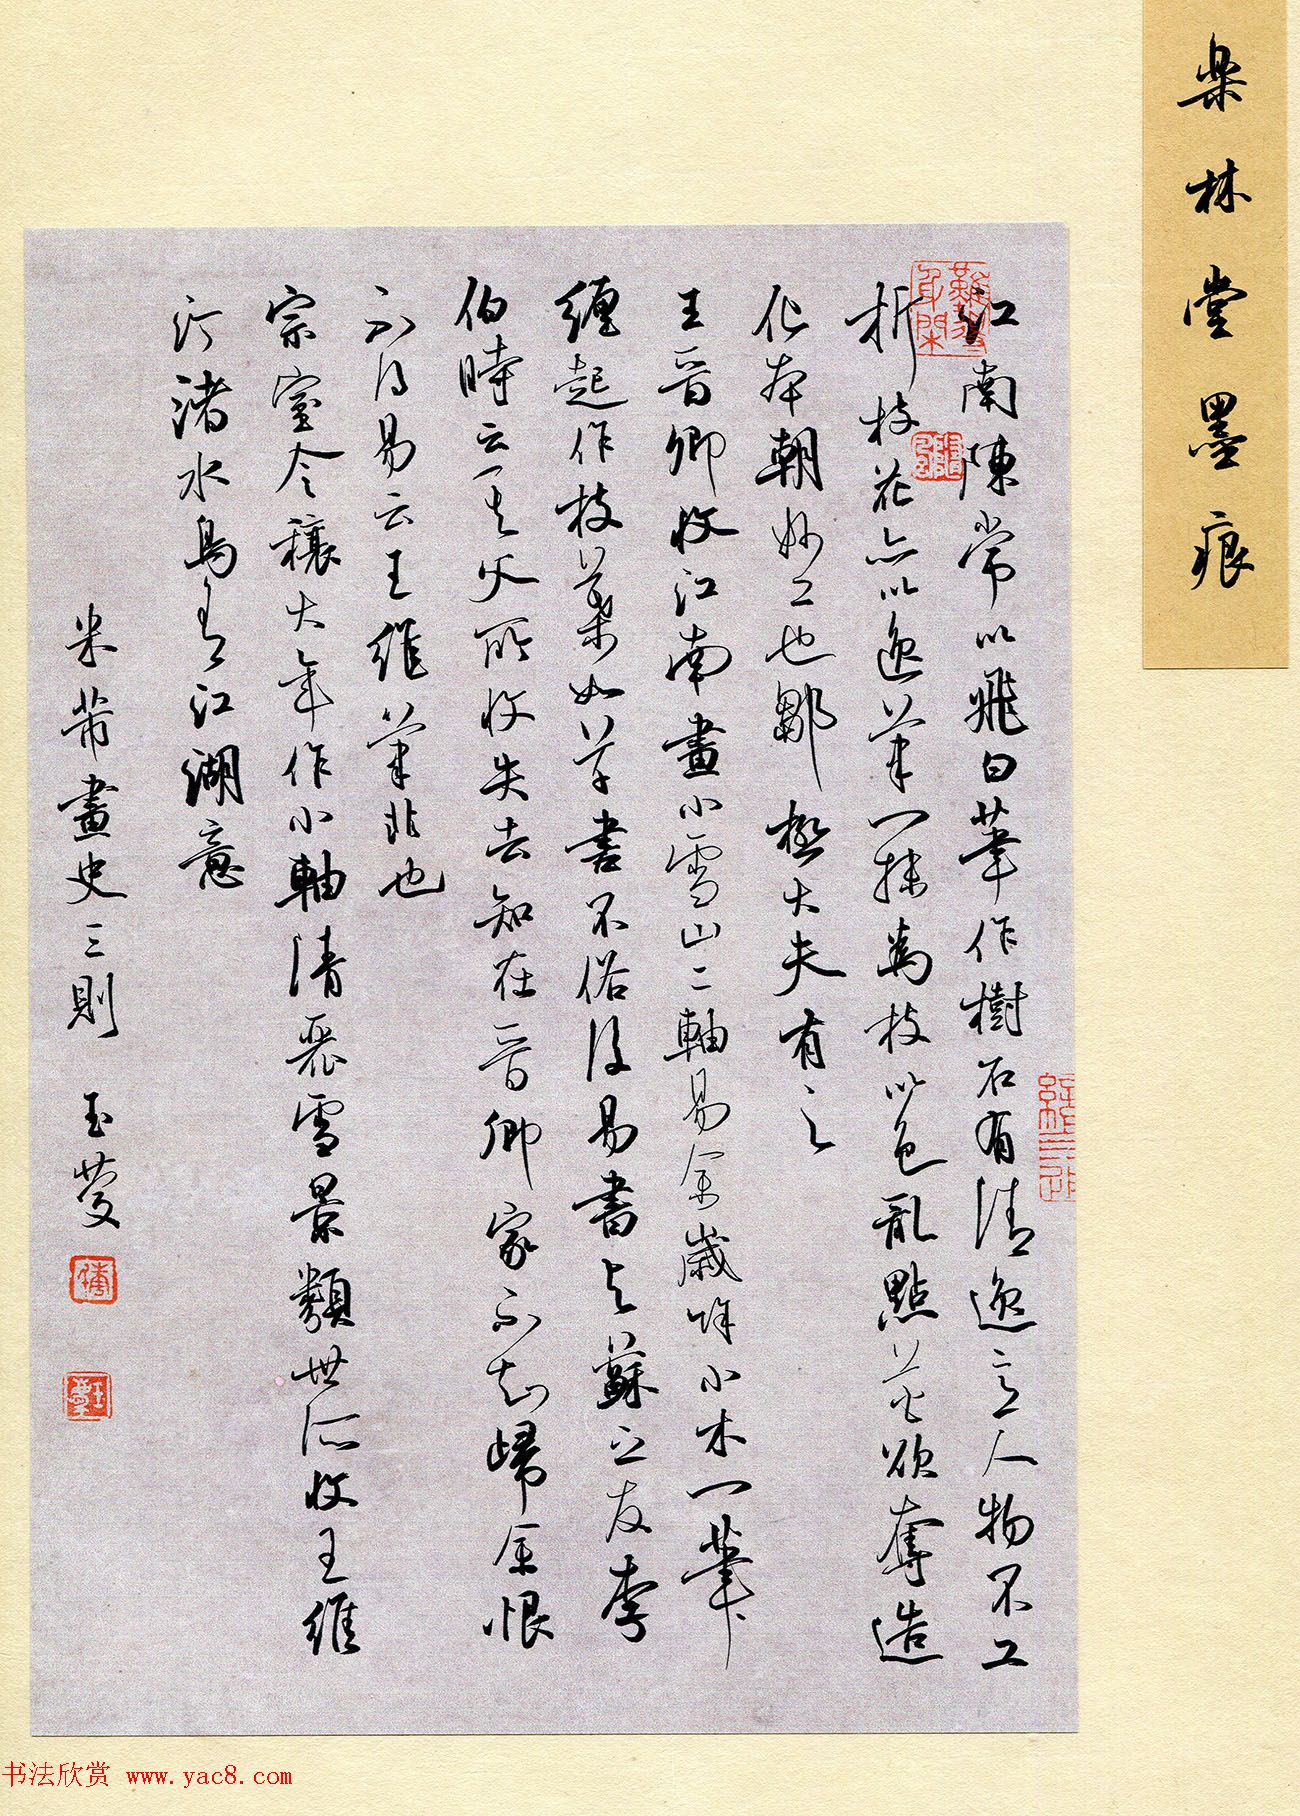 樂林堂墨痕
江南陳常以飛白筆作樹石有清逸意人物不工
折枝花亦以逸筆一抹為枝以色亂點花欲奪造
化本朝妙工也鄒極大夫有之
王晉卿收江南畫小雪山二軸易余歲餘小木一筆
纏起作枝葉如草書不俗後易書与蘇之友李
伯時云一其父所收失去知在晉卿家不知歸余恨
不得易云王維筆非也
宗室令穰大年作小軸清麗雪景類世所收王維
汀渚水鳥有江湖意
米芾畫史三則 玉夔
书法欣赏 www.yac8.com